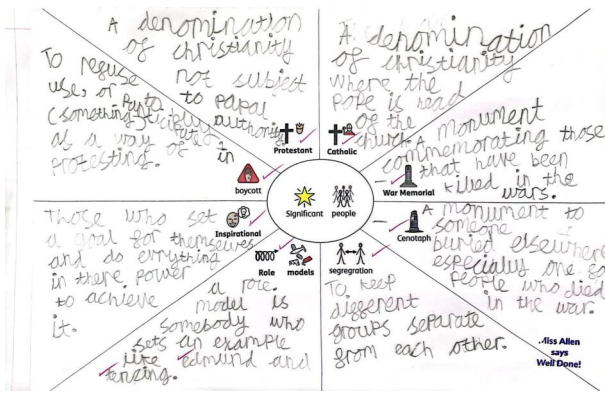 A denomination
of christianity
not subject
to papal
authority
Protestant
A denomination
of christianity
where the
Pope is head
of the
church
Catholic
A monument
commemorating those
that have been
killed in the
wars.
War Memorial
A monument to
someone
buried elsewhere
especially one for
people who died
in the war.
Cenotaph
segregation
To keep
different
groups separate
from each other.
Role models
a role
model is
somebody who
sets an example
like edmund and
tenzing.
Inspirational
Those who set
a goal for themselves
and do evrything
in there power
to achieve
it.
boycott
To refuse
use, or
(something)
as a way of
protesting.
Significant people
Miss Allen
says
Well Done!